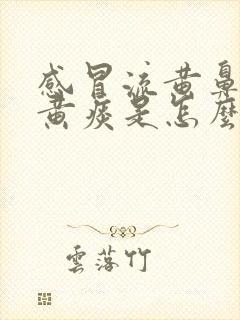 感冒流黄鼻
黄痰是怎麼
雲落竹